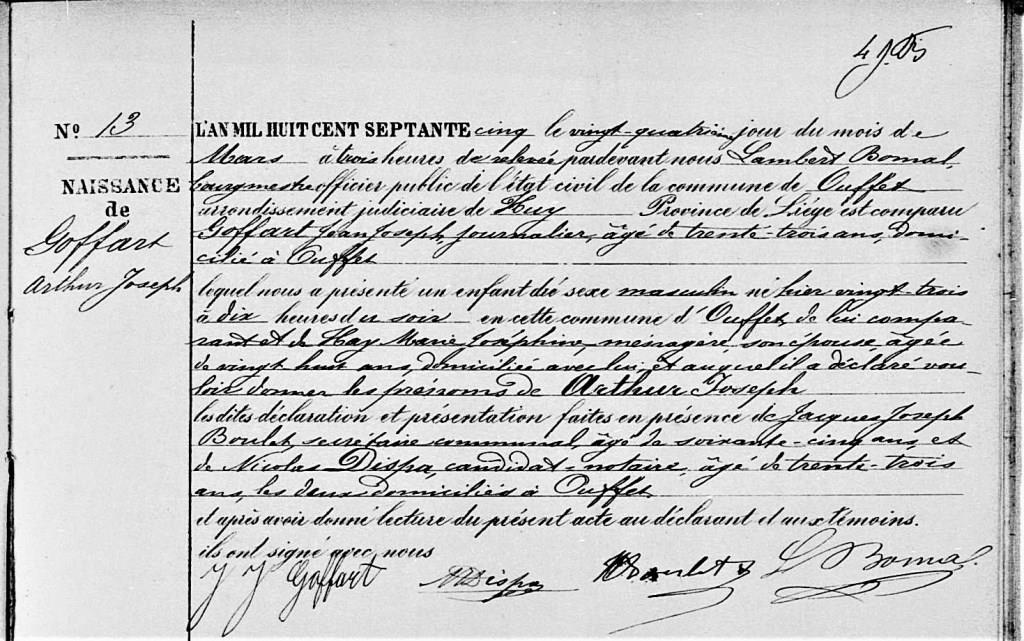 Nº 13
NAISSANCE
de
Goffart
Arthur Joseph
L'AN MIL HUIT CENT SEPTANTE cinq le vingt-quatrième jour du mois de
Mars à trois heures de relevée pardevant nous Lambert Bomal,
bourgmestre officier public de l'état civil de la commune de Ouffet
arrondissement judiciaire de Huy Province de Liége est comparu
Goffart Jean Joseph, journalier, âgé de trente-trois ans, domi-
cilié à Ouffet
lequel nous a présenté un enfant du sexe masculin né hier vingt-trois
à dix heures du soir en cette commune d'Ouffet, de lui compa-
rant et de Hay Marie Joséphine, ménagère, son épouse, âgée
de vingt huit ans, domiciliée avec lui, et auquel il a déclaré vou-
loir donner les prénoms de Arthur Joseph
les dites déclaration et présentation faites en présence de Jacques Joseph
Boulet, secrétaire communal, âgé de soixante-cinq ans, et
de Nicolas Dispa, candidat-notaire, âgé de trente-trois
ans, les deux domiciliés à Ouffet
et après avoir donné lecture du présent acte au déclarant et aux témoins.
ils ont signé avec nous
J J Goffart N Dispa Boulet L Bomal.